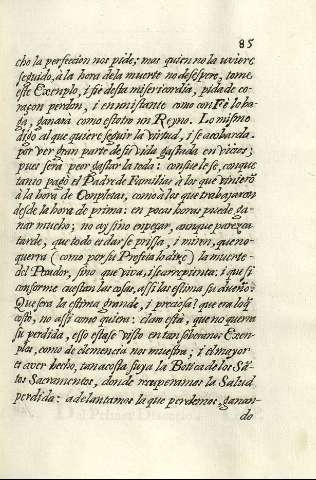 85
cho la perfeccion nos pide; mas quien no la uviere
seguido, à la hora dela muerte no desespere, tome
este Exemplo, i fie desta misericordia, pida de co-
raçon perdon, i en un istante como con Fè lo ha-
ga, ganarà como estotro un Reyno. Lo mismo
digo al que quiere seguir la virtud, i se acobarda
por ver gran parte de su vida gastada en vicios;
pues serà peor gastar la toda: consuele se, con que
tanto pagò el Padre de Familias à los que vinierõ
à la hora de Conpletas, como à los que trabajaron
desde la hora de prima: en pocas horas puede ga-
nar mucho; no ay sino enpeçar, aunque parezca
tarde, que todo es darse prissa, i miren, que no
querrà (como por su Profeta lo dize) la muerte
del Pecador, sino que viva, i se arrepinta: i que si
conforme cuestan las cosas, assi las estima su dueño:
Que sera la estima grande, i preciosa? que era lo q̃
costò, no assi como quiera: claro està, que no querra
su perdida, esso estase visto en tan soberano Exen-
plo, como de clemencia nos muestra; i el mayor
es aver hecho, tan acosta suya la Botica de los Sã-
tos Sacramentos, donde recuperamos la Salud
perdida: adelantamos la que perdemos, ganan-
do